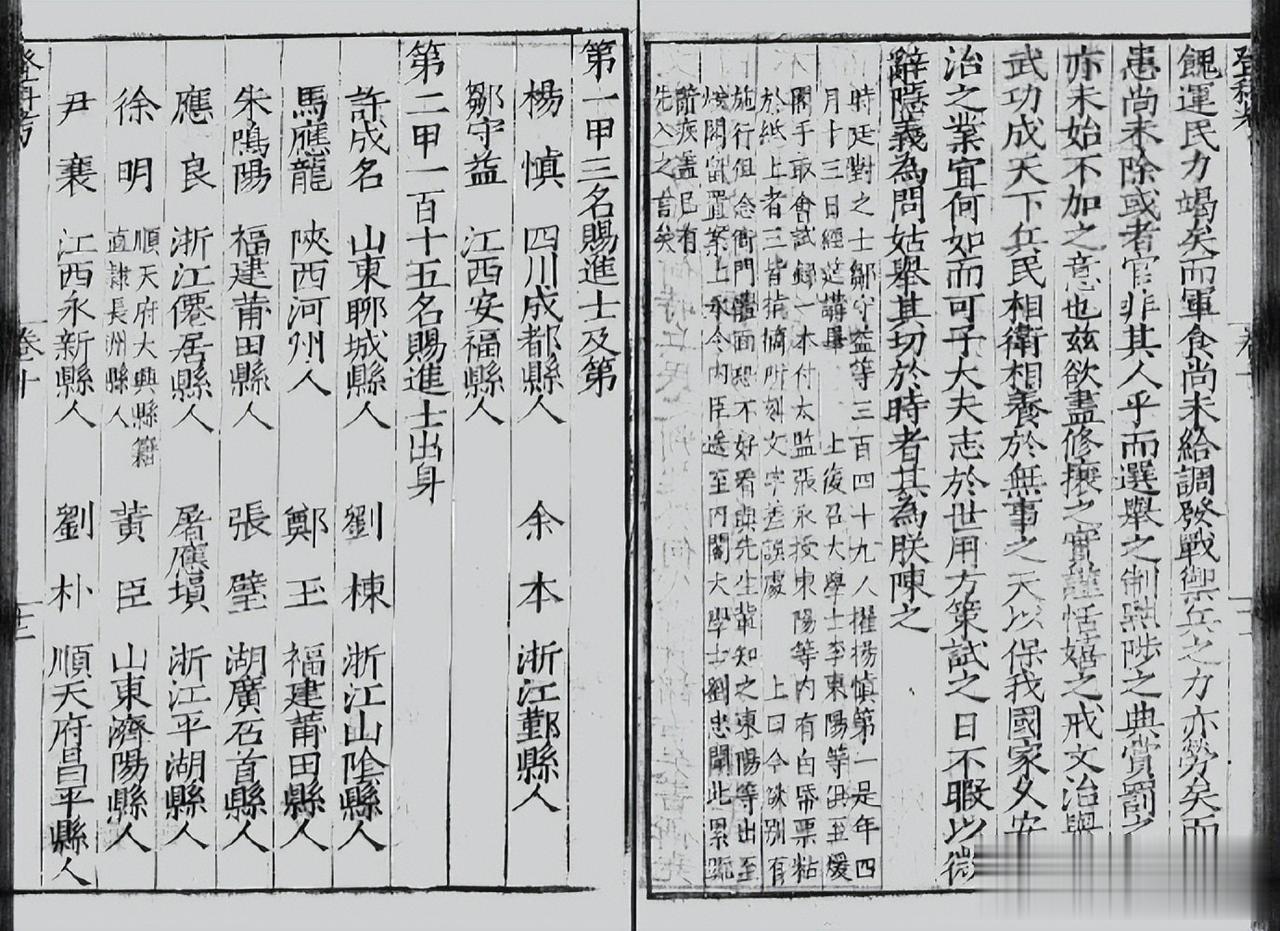 登科考
餽運民力竭矣而軍食尚未給調發戰禦兵之力亦勞矣而
患尚未除或者官非其人乎而選舉之制黜陟之典賞罰之
亦未始不加之意也茲欲盡修攘之實謹恬嬉之戒文治與
武功成天下兵民相衛相養於無事之天以保我國家久安
治之業宜何如而可子大夫志於世用方策試之日不暇以微
辭隱義為問姑舉其切於時者其為朕陳之
時廷對之士鄒守益等三百四十九人擢楊慎第一是年四
月十三日經筵講畢 上復召大學士李東陽等至煖
閣手敢會試錄一本付太監張永授東陽等內有白帋票粘
於紙上者三皆指摘所刻文字差誤處 上曰今欲別有
施行但念衙門體面恐不好看與先生輩知之東陽等出至
煖閣留置案上永令內臣送至內閣大學士劉忠聞此累疏
辭疾蓋已有
先入之言矣
第一甲三名賜進士及第
楊慎 四川成都縣人 余本 浙江鄞縣人
鄒守益 江西安福縣人
第二甲一百十五名賜進士出身
許成名 山東聊城縣人 劉棟 浙江山陰縣人
馬應龍 陝西河州人 鄭玉 福建莆田縣人
朱鳴陽 福建莆田縣人 張璧 湖廣石首縣人
應良 浙江僊居縣人 屠應塤 浙江平湖縣人
徐明 順天府大興縣籍直隸長洲縣人 黃臣 山東濟陽縣人
尹襄 江西永新縣人 劉朴 順天府昌平縣人
登科考 卷十